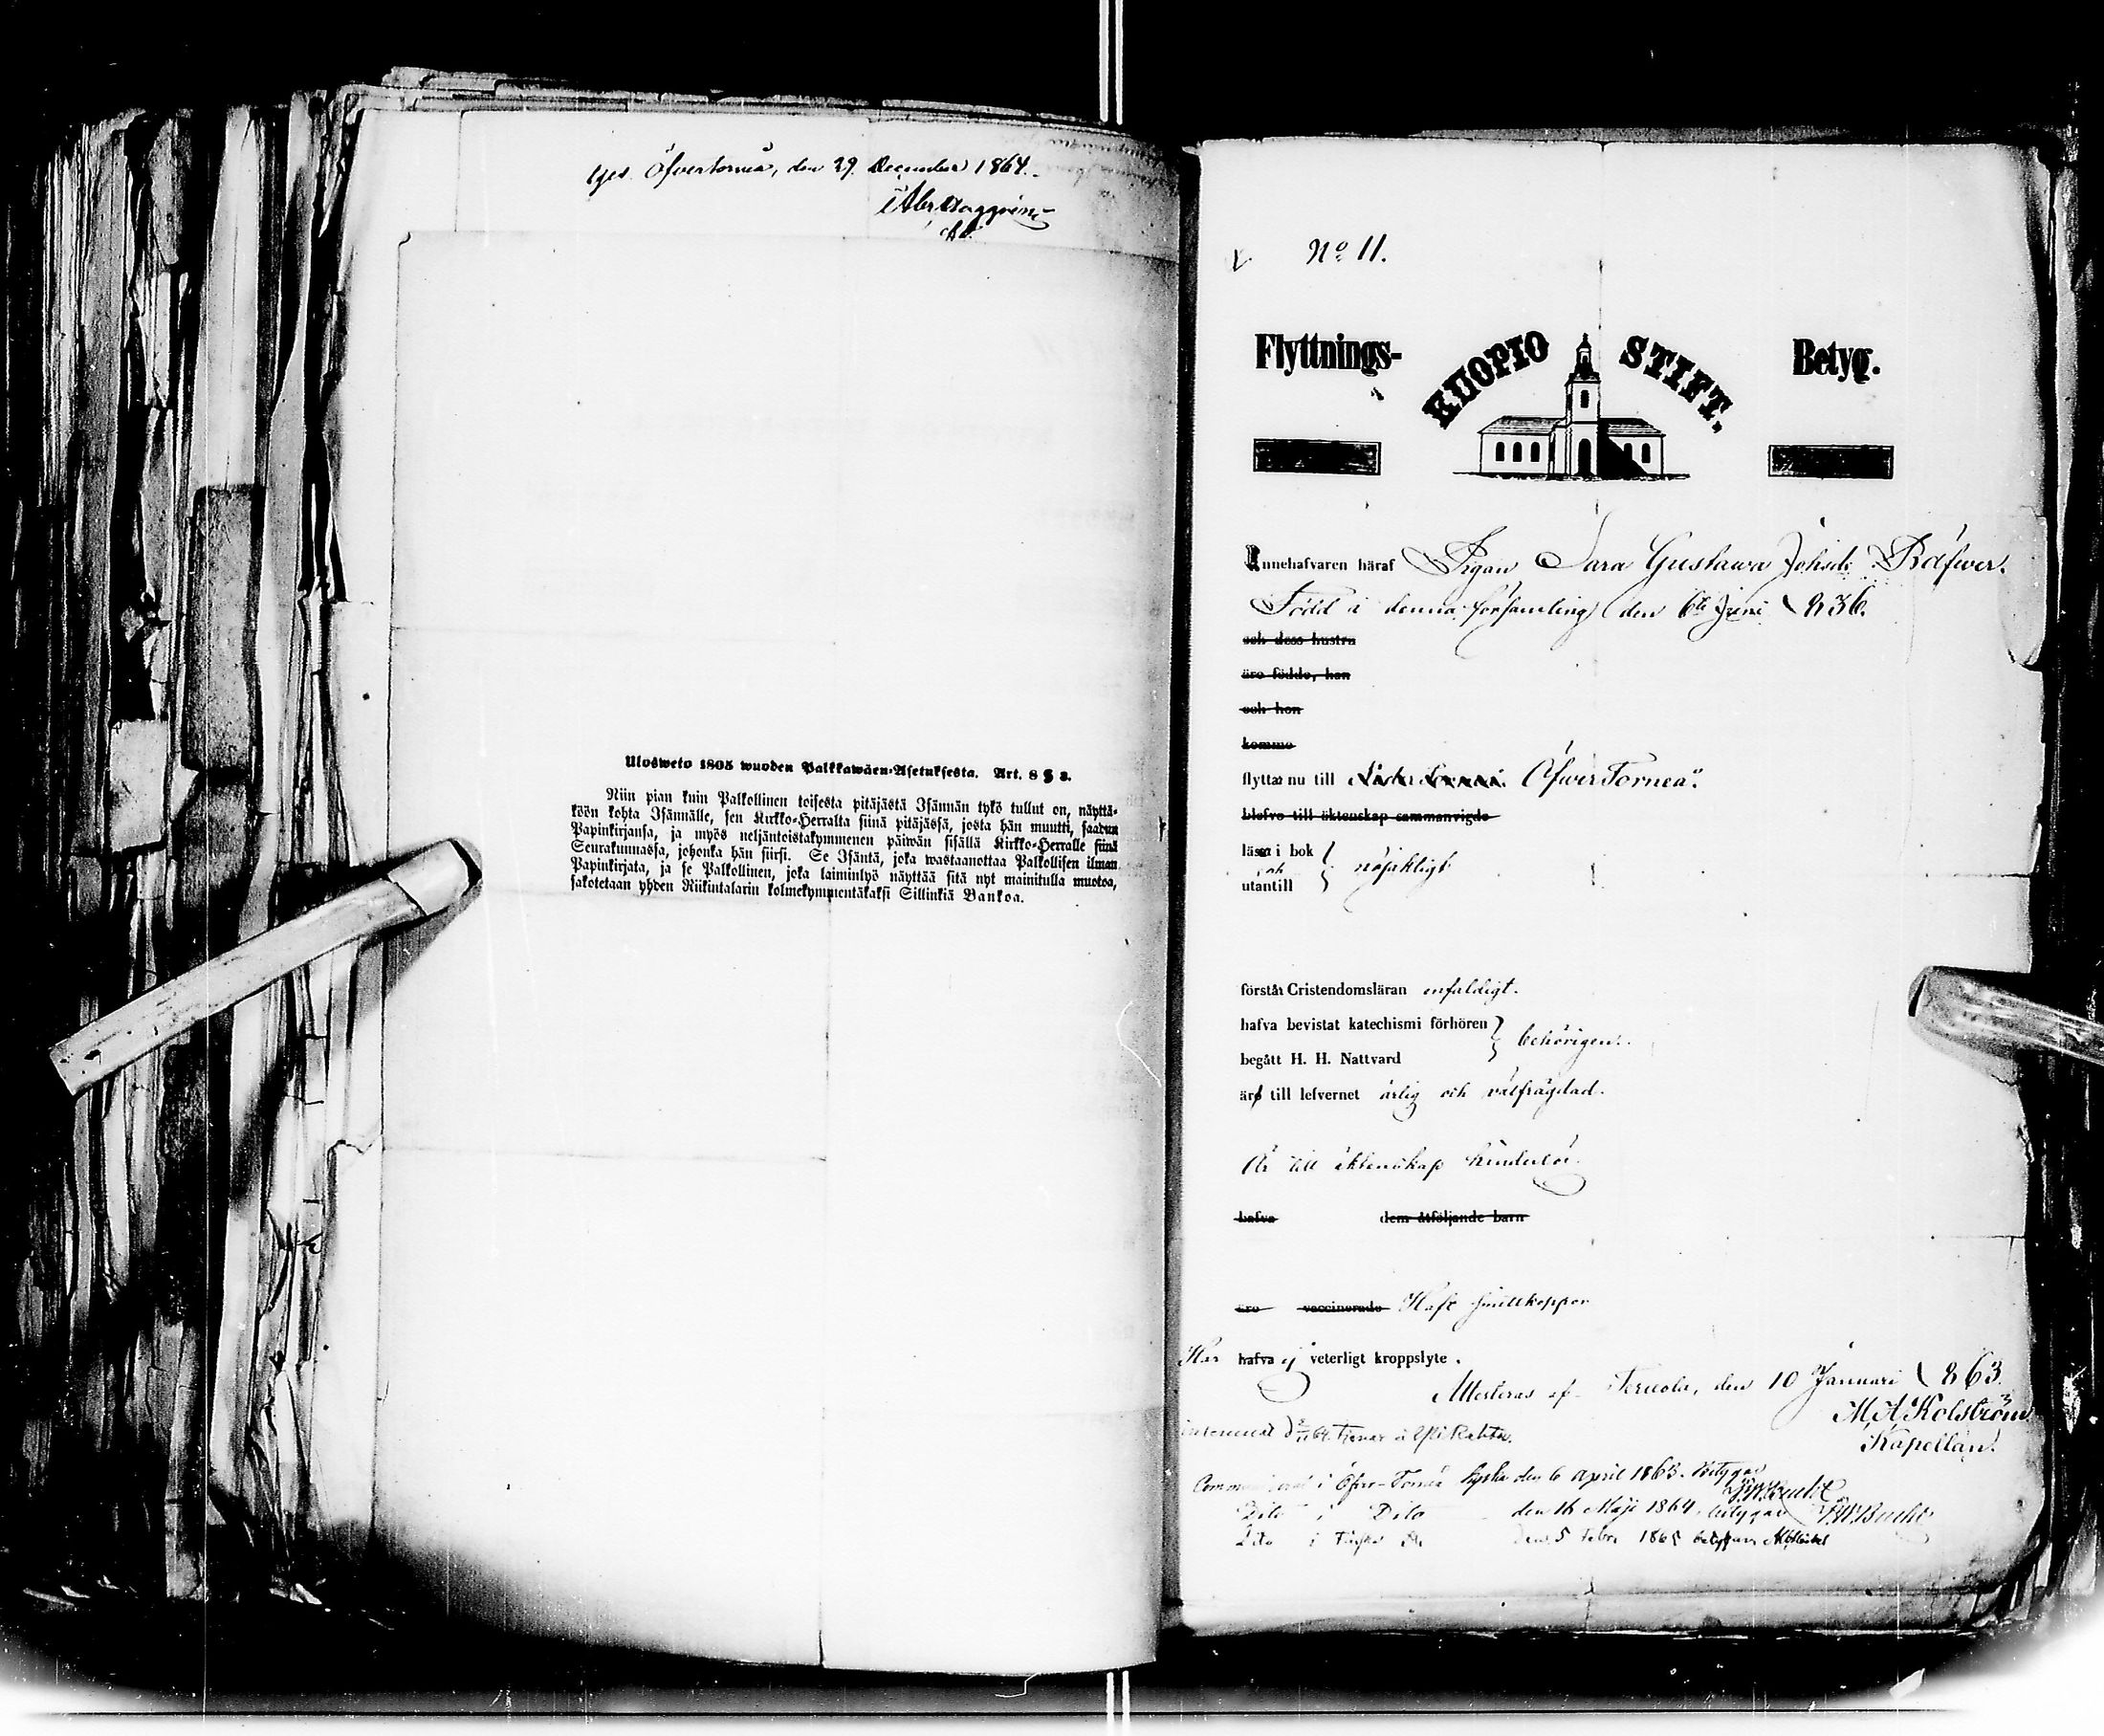 Öfvertorneå, den 29. December 1864.
Ulosweto 1805 wuoden Palkkawäen-Asetuksesta. Art. 8 § 3.
Niin pian kuin Palkollinen toisesta pitäjästä Isännän tykö tullut on, näyttä-
köön kohta Isännälle, sen Kirkko-Herralta siinä pitäjässä, josta hän muutti, saadun
Papinkirjansa, ja myös neljäntoistakymmenen päiwän sisällä Kirkko-Herralle siinä
Seurakunnassa, johonka hän siirsi. Se Isäntä, joka wastaanottaa Palkollisen ilman
Papinkirjata, ja se Palkollinen, joka laiminlyö näyttää sitä nyt mainitulla muotoa,
sakotetaan yhden Riikintalarin kolmekymmentäkaksi Sillinkiä Bankoa.
No 11.
Flyttnings- KUOPIO STIFT. Betyg.
Innehafvaren häraf Pigan Sara Gustawa Johsdr Räfwer.
Född i denna församling den 6te Juni 1836.
och dess hustru
äro födde, han
och hon
komme
flyttar nu till ÖfwerTorneå.
blefvo till äktenskap sammanvigde
läsa i bok
och nöjaktigt
utantill
förstår Cristendomsläran enfaldigt.
hafva bevistat katechismi förhören
behörigen.
begått H. H. Nattvard
äro till lefvernet ärlig och välfrägdad.
Är till äktenskap hinderlös.
hafva dem åtföljande barn
äro vaccinerade Haft smittkoppor
Har hafva ej veterligt kroppslyte.
Attesteras af Tervola, den 10 Januari 1863.
M. A. Kolström
Kapellan.
i Öfver-Torneå kyrka den 6 April 1863. betygar
Dito i Dito den 16 Maji 1864, betygar F.W.Bucht
Dito i den 5 Febr. 1865 betygar